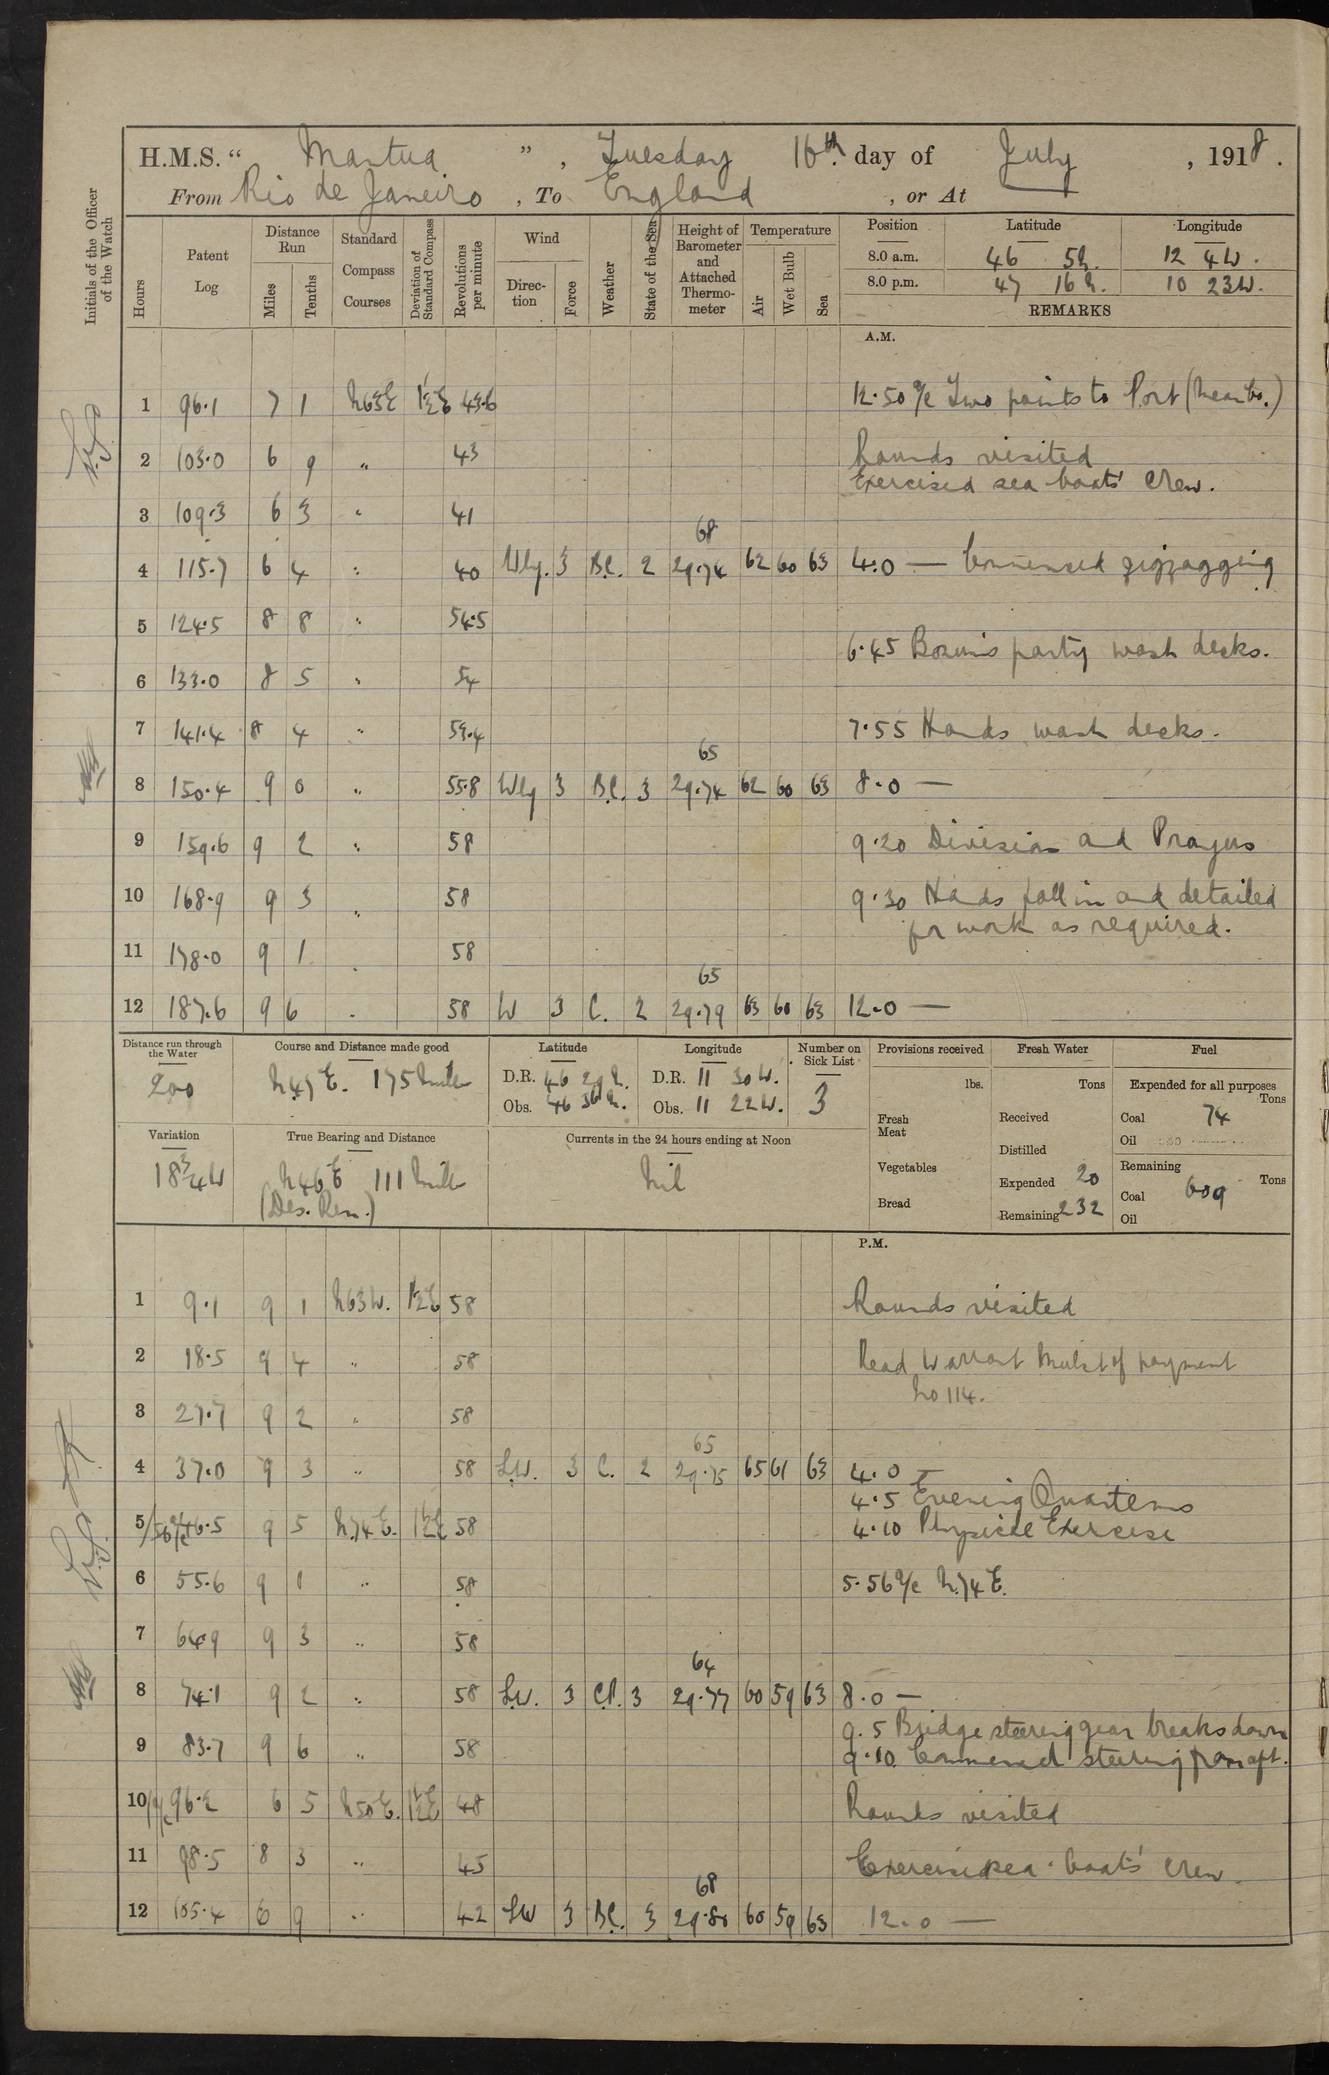 H.M.S. " Mantua " , Tuesday 16th day of July , 1918 .
From Rio de Janeiro , To England , or At
Initials of the Officer of the Watch
Hours
Patent Log
Distance Run
Miles
Tenths
Standard Compass Courses
Deviation of Standard Compass
Revolutions per minute
Wind
Direction
Force
Weather
State of the Sea
Height of Barometer and Attached Thermometer
Temperature
Air
Wet Bulb
Sea
Position Latitude Longitude
8.0 a.m. 46 5N. 12 4W.
8.0 p.m. 47 16N. 10 23W.
REMARKS
A.M.
1 96.1 7 1 N63E 1½E 43.6 12.50 a/c Two points to Port (Mean Co.)
2 103.0 6 9 " 43 Rounds visited
Exercised sea boats' crew.
3 109.3 6 3 " 41
68
4 115.7 6 4 " 40 Wly. 3 B.C. 2 29.74 62 60 63 4.0 — Commenced zigzagging
5 124.5 8 8 " 54.5
6.45 Bosun's party wash decks.
6 133.0 8 5 " 54
7 141.4 8 4 " 53.4 7.55 Hands wash decks.
65
8 150.4 9 0 " 55.8 Wly 3 B.C. 3 29.74 62 60 63 8.0 —
9 159.6 9 2 " 58 9.20 Divisions and Prayers
10 168.9 9 3 " 58 9.30 Hands fall in and detailed
for work as required.
11 178.0 9 1 " 58
65
12 187.6 9 6 " 58 W 3 C. 2 29.79 63 60 63 12.0 —
Distance run through the Water
200
Course and Distance made good
N47E. 175 miles
Latitude
D.R. 46 29N.
Obs. 46 36N.
Longitude
D.R. 11 30W.
Obs. 11 22W.
Number on Sick List
3
Provisions received
lbs.
Fresh Meat
Vegetables
Bread
Fresh Water
Tons
Received
Distilled
Expended 20
Remaining 232
Fuel
Expended for all purposes
Tons
Coal 74
Oil
Remaining
Tons
Coal 609
Oil
Variation
18¾W
True Bearing and Distance
N46E 111 miles
(Des. Ren.)
Currents in the 24 hours ending at Noon
Nil
P.M.
1 9.1 9 1 N63W. 1½E 58 Rounds visited
2 18.5 9 4 " 58 Read Warrant Mulct of payment
No 114.
3 27.7 9 2 " 58
65
4 37.0 9 3 " 58 S.W. 3 C. 2 29.75 65 61 63 4.0 —
4.5 Evening Quarters
5/56 a/c 46.5 9 5 N.74E. 1½E 58 4.10 Physical Exercise
6 55.6 9 1 " 58 5.56 a/c N.74E.
7 64.9 9 3 " 58
64
8 74.1 9 2 " 58 S.W. 3 C.P. 3 29.77 60 59 63 8.0 —
9.5 Bridge steering gear breaks down
9 83.7 9 6 " 58 9.10 Commenced steering from aft.
10 a/c 96.2 6 5 N50E. 1½E 48 Rounds visited
11 98.5 8 3 " 45 Exercised sea boats' crew.
68
12 105.4 6 9 " 42 SW 3 B.C. 3 29.80 60 59 63 12.0 —